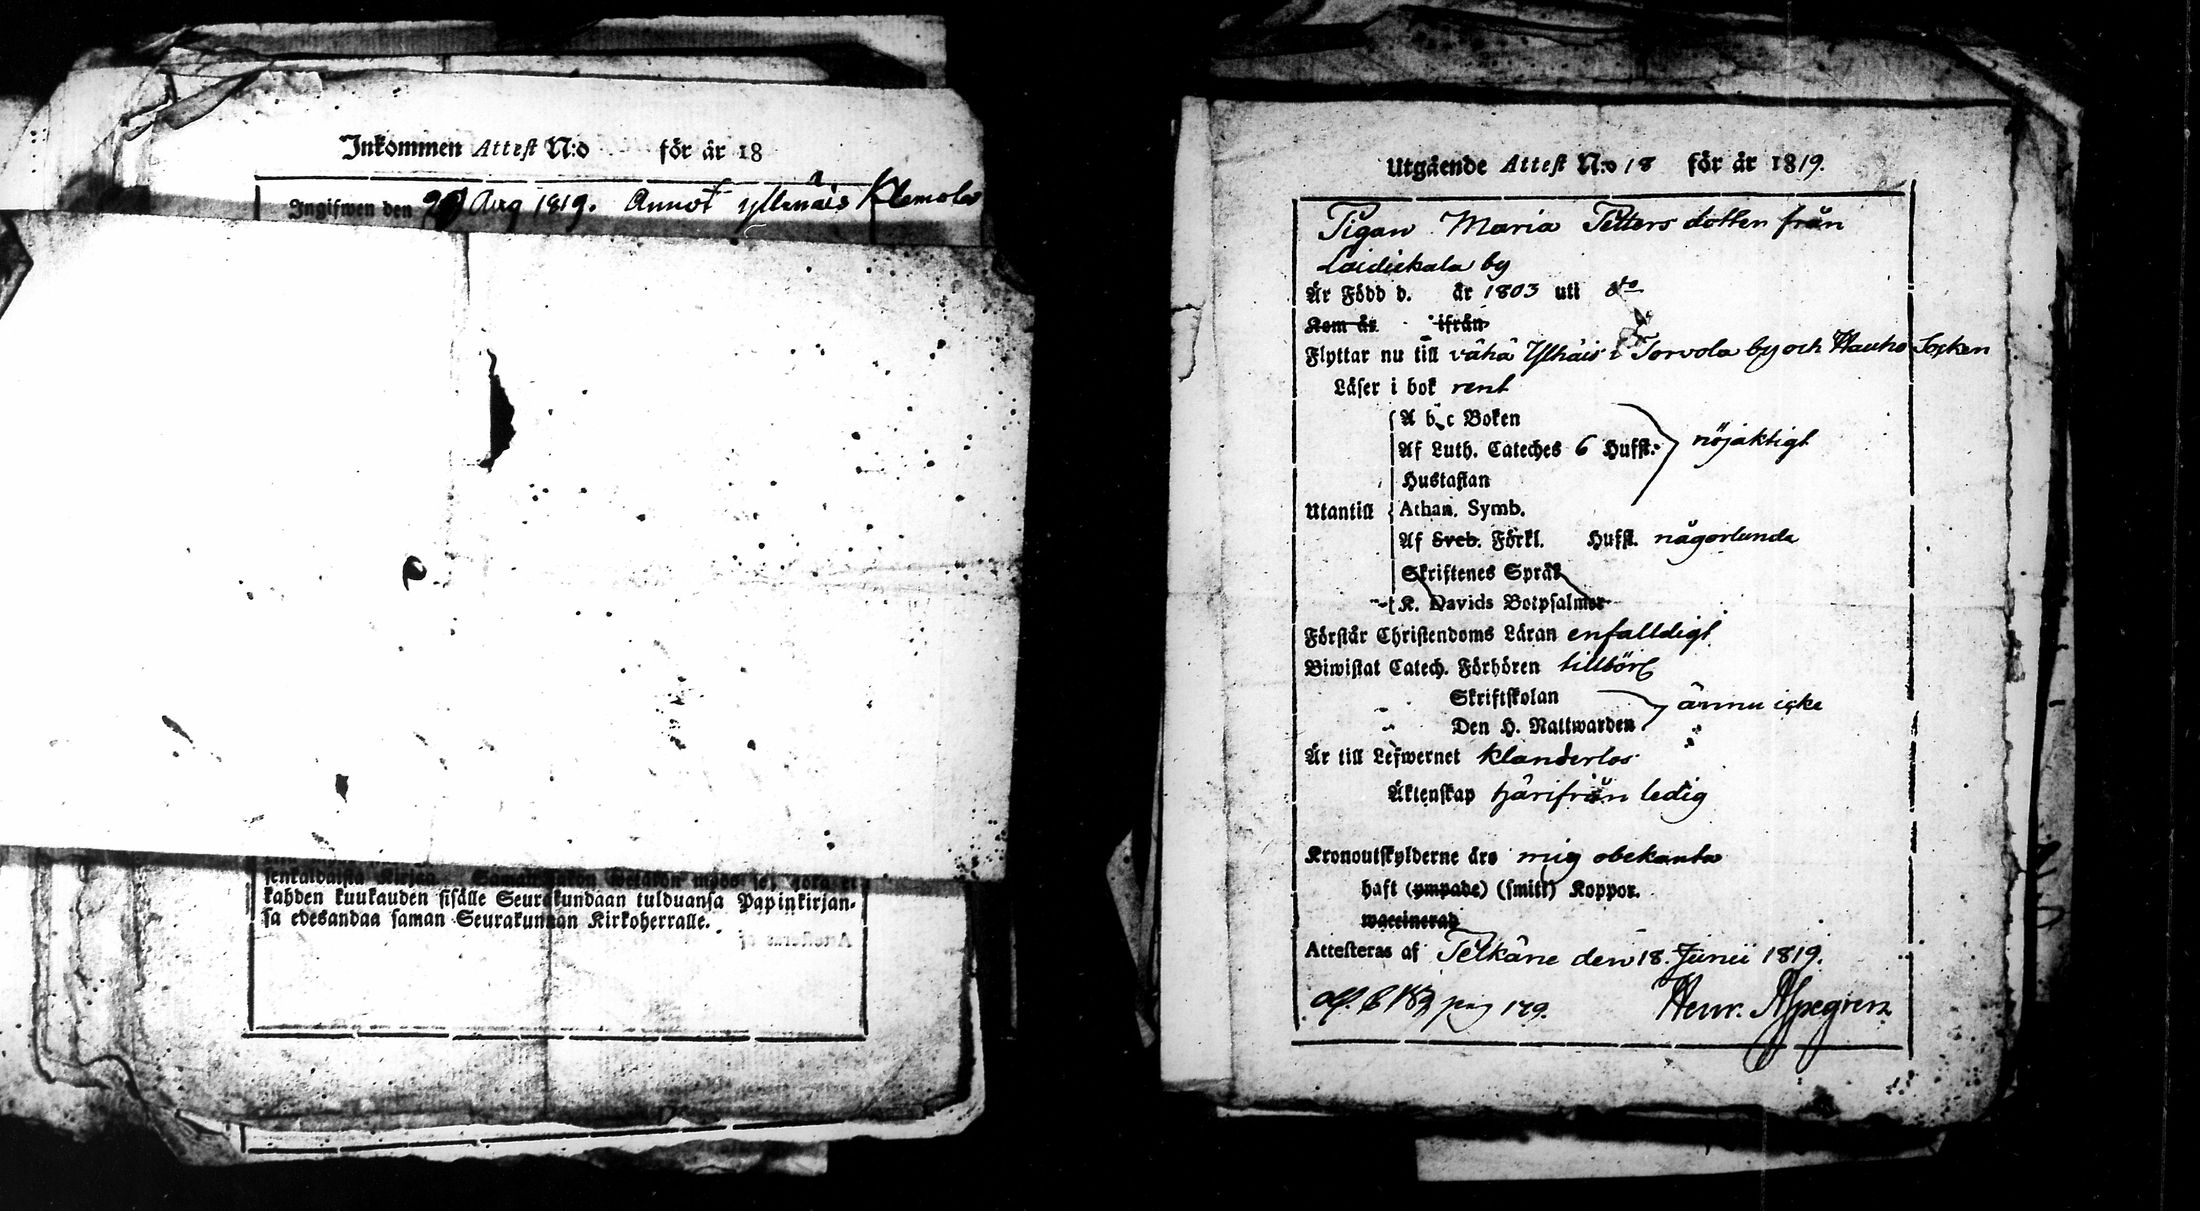 Inkommen Attest N:o för år 18
Ingifwen den 29 Aug 1819. Annot Yllenäis Klemola
sentaldaista Kirjea
kahden kuukauden sisälle Seurakundaan tulduansa Papinkirjan-
sa edesandaa saman Seurakunnan Kirkoherralle.
Utgående Attest N:o 18 för år 1819.
Pigan Maria Petters dotter från
Laidickala by
Är Född d. år 1803 uti do
Kom år ifrån
Flyttar nu till vähä Ylhäis i Torvola by och Hauho Socken
Läser i bok rent
A b c Boken
Af Luth. Cateches 6 Hufst. nöjaktigt
Hustaflan
Utantill Athan. Symb.
Af Sveb. Förkl. Hufst. någorlunda
Skriftenes Språk
K. Davids Botpsalmer
Förstår Christendoms Läran enfalldigt
Biwistat Catech. Förhören tillbörl
Skriftskolan
Den H. Nattwarden ännu icke
Är till Lefwernet klanderlös
Äktenskap härifrån ledig
Kronoutskylderne äro mig obekanta
haft (ympade) (smitt) Koppor.
waccinerad
Attesteras af Pelkäne den 18. Junii 1819.
pag 179. Henr. Alpegren